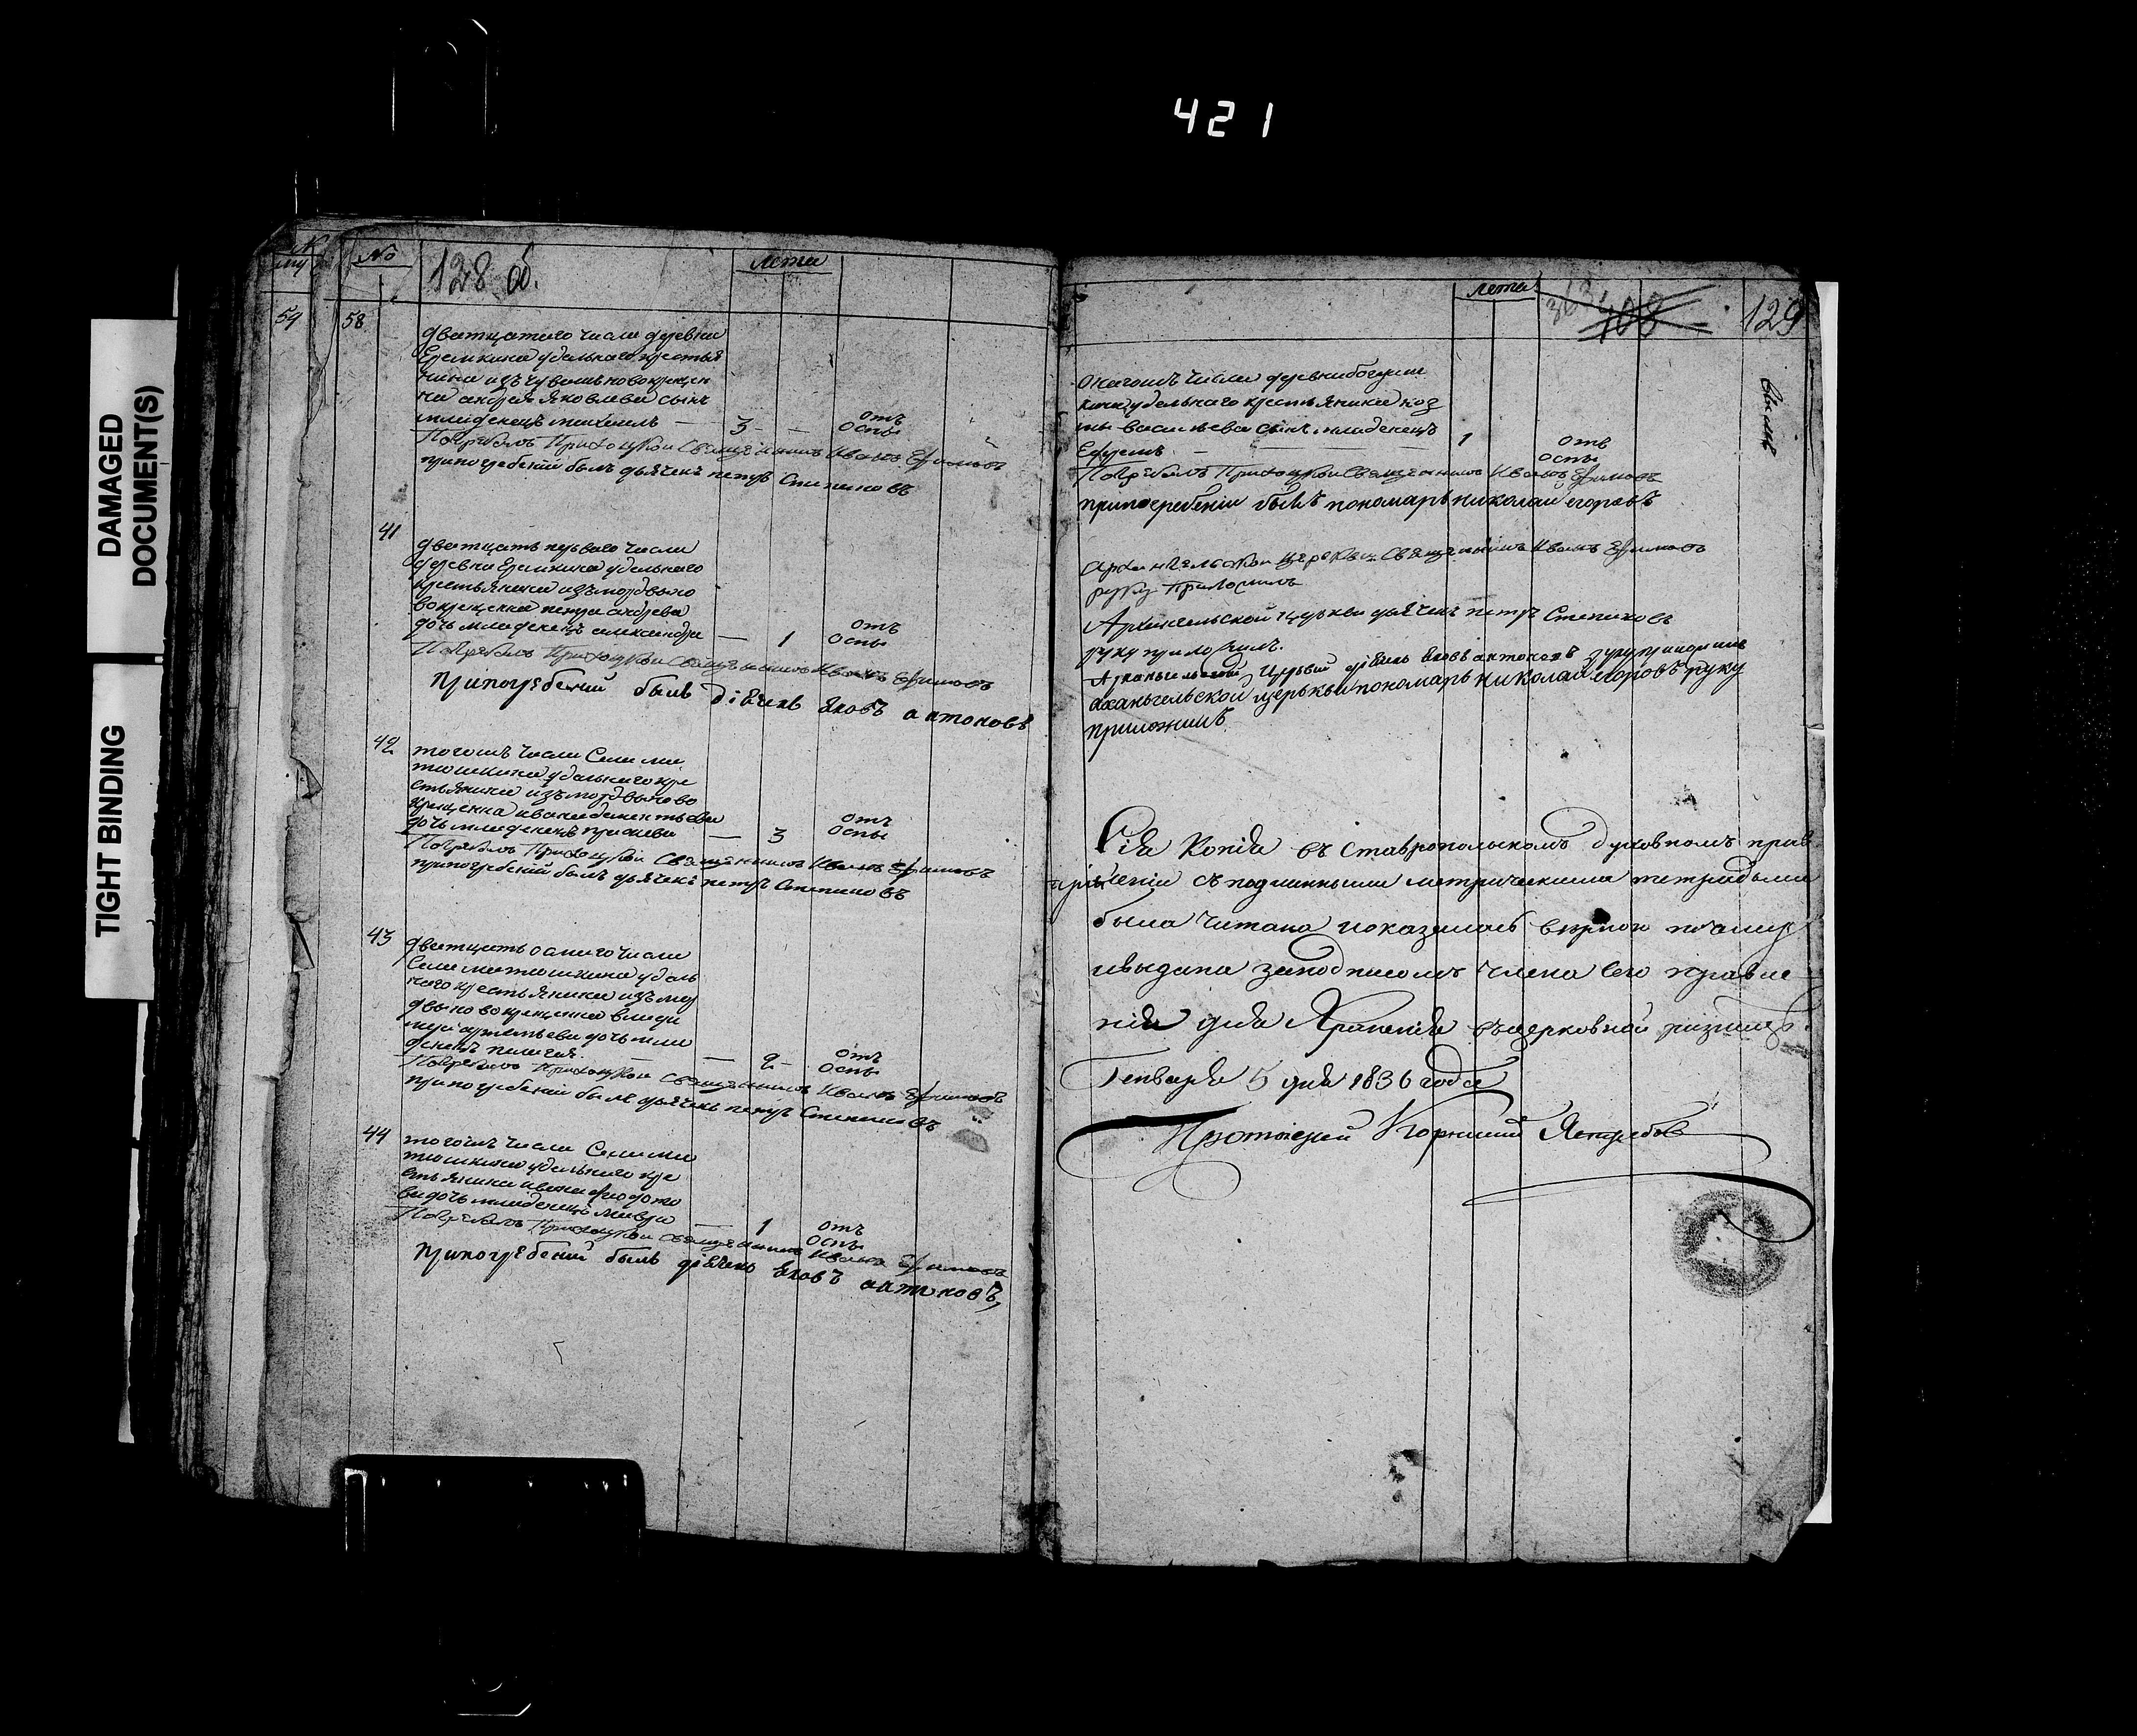 421
DAMAGED
DOCUMENT(S)
TIGHT BINDING
№
128 об.
лета
54
58
дватцатаго числа деревни
Еремкина удельнаго крестья
нина изъ чувашъ новокрещен
на андрея яковлева сынъ
младенецъ михаилъ — 3 — отъ
оспы
Погребалъ Приходской Священникъ Иванъ Ефимовъ
припогребении былъ дьячекъ петръ Степановъ
41
дватцать перваго числа
деревни Еремкина удельнаго
крестьянина изъ мордвы но
вокрещенна петра андреева
дочь младенецъ александра — 1 отъ
оспы
Погребалъ Приходской Священникъ Иванъ Ефимовъ
припогребении былъ дiячекъ яковъ антоновъ
42
тогожъ числа Села ма
тюшкина удельнаго кре
стьянина изъ мордвы ново
крещенна ивана дементьева
дочь младенецъ — 3 отъ
оспы
Погребалъ Приходской Священникъ Иванъ Ефимовъ
припогребении былъ дьячекъ петръ Степановъ
43
дватцать осмаго числа
Села матюшкина удель
наго крестьянина изъ мор
двы новокрещенна влади
мера артемьева дочь мла
денецъ пелагея — 2 — отъ
оспы
Погребалъ Приходской Священникъ Иванъ Ефимовъ
припогребении былъ дьячекъ петръ Степановъ
44
тогожъ числа Села ма
тюшкина удельнаго кре
стьянина ивана федото
ва дочь младенецъ мавра — 1 отъ
оспы
Погребалъ Приходской Священникъ Иванъ Ефимовъ
припогребении былъ дiячекъ яковъ антоновъ
лета
363
408
129
онагожъ числа деревни
удельнаго крестьянина коз
мы васильева сынъ младенецъ
Ефремъ — 1 отъ
оспы
Погребалъ Приходской Священникъ Иванъ Ефимовъ
припогребении былъ пономарь николай егоровъ
Архангельской Церкви Священникъ Иванъ Ефимовъ
руку приложилъ
Архангельской церкви дьячекъ петръ Степановъ
руку приложилъ.
Архангельской Церкви дiячекъ яковъ антоновъ руку приложилъ
архангельской церькви пономарь николай егоровъ руку
приложилъ
Сiя Копiя въ Ставропольскомъ духовномъ прав
ленiи съ подлинными метрическими тетрадьми
была читана и оказалась верною почему
и выдана заподписомъ члена сего правле
нiя для храненiя въ церковной ризнице.
Генваря 5 дня 1836 года
Протоиерей Корнилий Ястребовъ